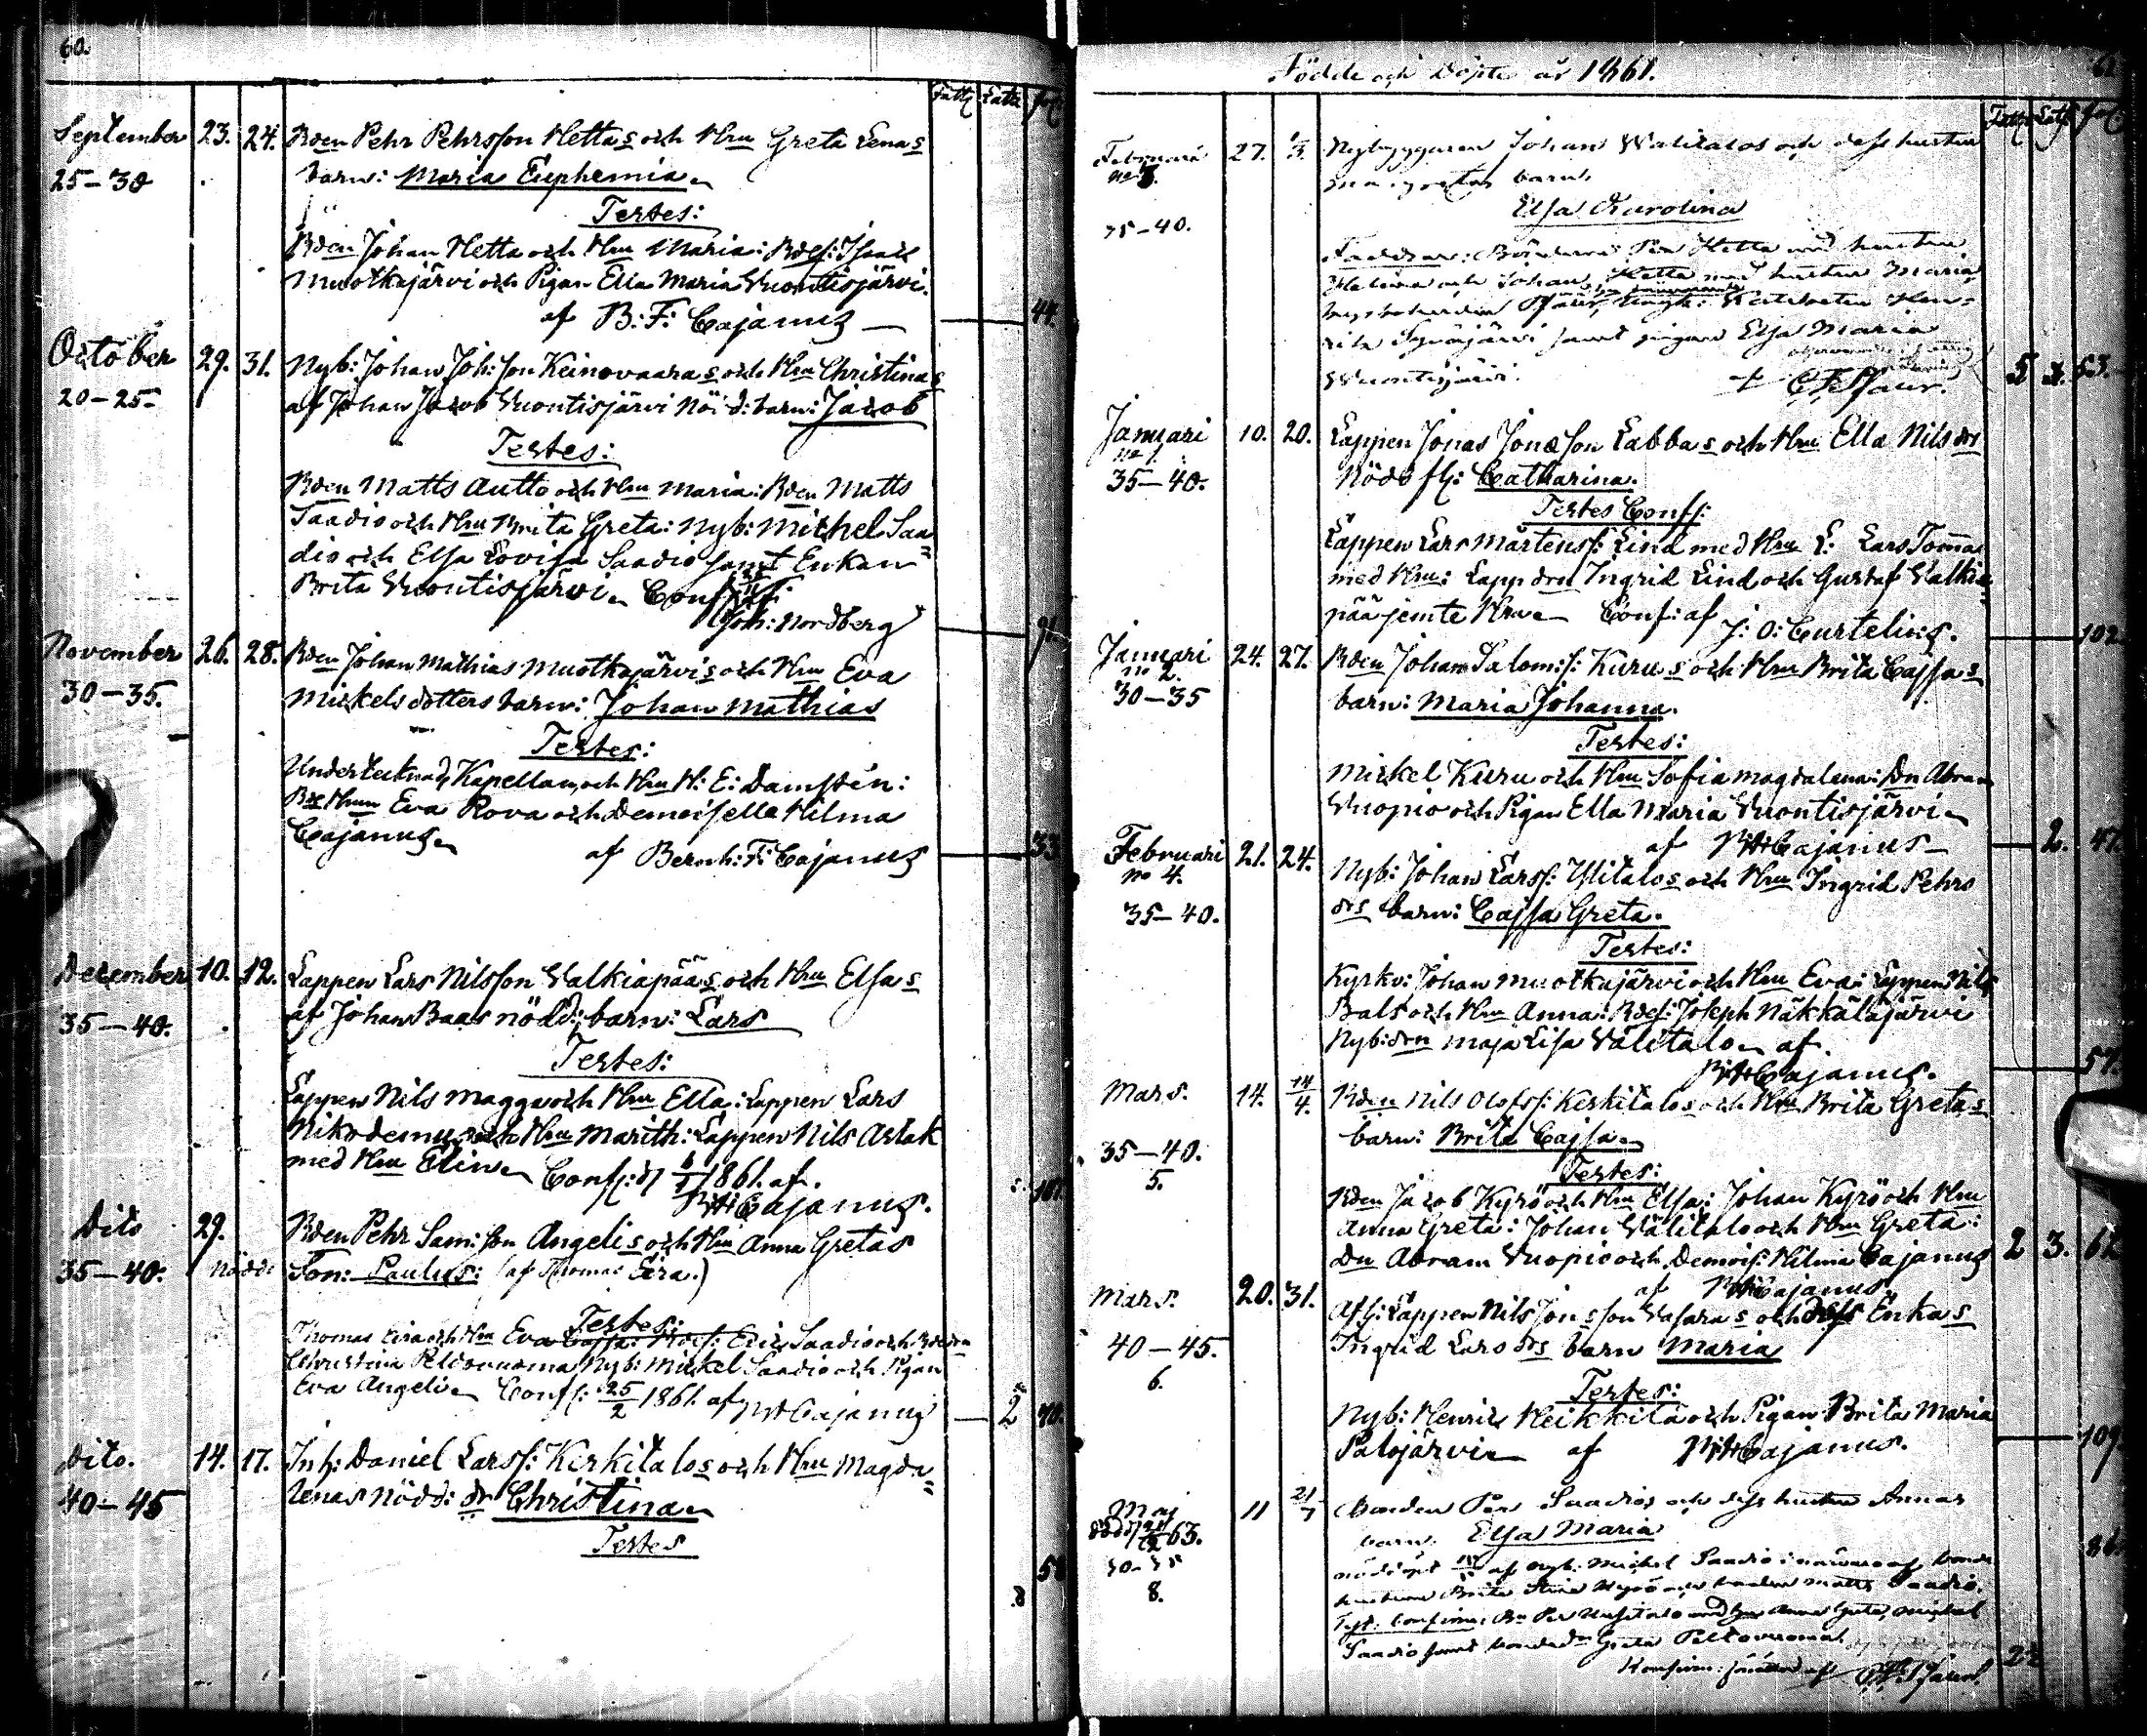 60.
Fattg Läth pag:
September 23. 24. Bden Pehr Pehrsson Hettas och Hru Greta Lenas
25-30 barn: Maria Euphemia
Testes:
Bden Johan Hetta och Hru Maria: Bdes: Isaac
Muotkajärvi och Pigan Ella Maria Vuontisjärvi.
af B: F: Cajanus 44.
October 29. 31. Nyb: Johan Joh: son Keinovaaras och Hru Christinas
20-25. af Johan Jacob Vuontisjärvi Nöd: barn: Jacob
Testes:
Bden Matts Autto och Hru Maria: Bden Matts
Saadio och Hru Brita Greta: Nyb: Michel Saa=
dio och Elsa Lovisa Saadio samt Enkan
Brita Vuontisjärvi Conf:
Joh: Nordberg 91.
November 26. 28. Bden Johan Mathias Muotkajärvis och Hru Eva
30-35. Mickelsdotters barn: Johan Mathias
Testes:
Undertecknad, Kapellan och Hru H: E: Damstén:
Hrun Eva Rova och Demoiselle Hilma
Cajanus
af Bernh: F: Cajanus 33
December 10. 12. Lappen Lars Nilsson Valkiapääs och Hru Elsas
35-40. af Johan Baas nödd: barn: Lars
Testes:
Lappen Nils Magga och Hru Ella: Lappen Lars
Nikodemus och Hru Marith: Lappen Nils Aslak
med Hru Elin Conf: d 6/1 1861. af.
Cajanus. 107.
Dito 29. Bden Pehr Sam: son Angelis och Hru Anna Gretas
35-40. nödd: Son: Paulus: (af Thomas Eira.)
Testes:
Thomas Eira och Hru Eva Cajsa: Bdes: Eric Saadio och Bdedn
Christina Peldovuoma Nyb: Mickel Saadio och Pigan
Eva Angeli Conf: 25/2 1861. af Cajanus 2 40.
Dito. 14. 17. Inh: Daniel Larss: Kerkitalos och Hru Magda=
40-45 lenas Nödd: dr Christina
Testes
58
Födde och Döpte år 1861.
61
Fattg Läth pag:
Februari 27. 1/3. Nybyggaren Johan Walitalos och dess hustru
no 3. Margretas barn.
Elsa Karolina
35-40.
Faddrar: Bönderne Per Hetta med hustru
Helena och Johan Hetta med hustru Maria
Pfaler, Katheketen Hen=
rik Syväjärvi samt pigan Elsa Maria
Wuontisjärvi. C F Pfaler. 5 2. 53.
Januari 10. 20. Lappen Jonas Jonæson Labbas och Hru Ella Nils drs
no 1. Nöds fl: Catharina.
35-40. Testes Conf:
Lappen Lars Mårtenss: Lind med Hru L: Lars Tomma
med Hru: Lapp drn Ingrid Lind och Gustaf Valkia=
pää jemte Hru Conf: af J: O: Curtelius. 102
Januari 24. 27. Bden Johan Salom: s: Kurus och Hru Brita Cajsas
no 2.
30-35 barn: Maria Johanna.
Testes:
Mickel Kuru och Hru Sofia Magdalena: Dn Abram
Vuopio och Pigan Ella Maria Vuontisjärvi
af Cajanus 2. 47.
Februari 21. 24. Nyb: Johan Larss: Ylitalos och Hru Ingrid Pehrs
no 4. drs barn: Cajsa Greta.
35-40. Testes:
Kyrkv: Johan Muotkajärvi och Hru Eva: Lappen Nils
Bals och Hru Anna: Bdes: Joseph Näkkäläjärvi
Nyb: drn Maja Lisa Välitalo af.
Cajanus. 57.
Mars. 14. 14/4. Bden Nils Olofss: Kerkitalos och Hru Brita Gretas
35-40. barn: Brita Cajsa
5. Testes:
Bden Jacob Kyrö och Hru Elsa: Johan Kyrö och Hru
Anna Greta: Johan Välitalo och Hru Greta:
Dn Abram Vuopio och Demois: Hilma Cajanus 2 3. 62
af Cajanus
Mars. 20. 31. Afl: Lappen Nils Jonsson Vasaras och dess Enkas
40-45. Ingrid Lars drs barn Maria
6. Testes:
Nyb: Henric Heikkilä och Pigan Brita Maria
Palojärvi af Cajanus. 109
Maj 11 21/7 Bonden Per Saadios och dess hustru Annas
63. barn. Elsa Maria
30-35 nöddöpt af nyb: Mickel Saadio i närvaro af bonde 86.
8. hustrun Brita Stina Kyrö och bonden Matts Saadio.
Test. confirm: Bn Per Uusitalo med hru Anna Greta, Mickel
Saadio samt bondedn Greta Peltovuoma
Konfirm: af C. F. Pfaler. 22